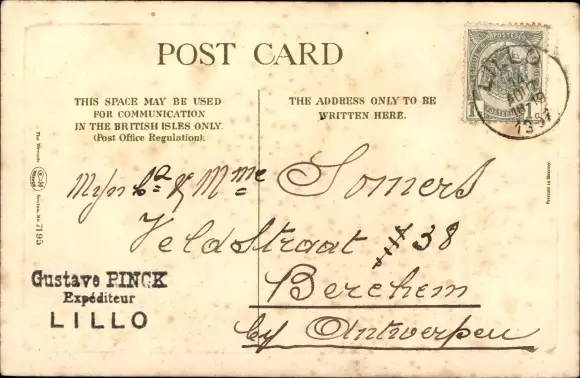 POST CARD
THIS SPACE MAY BE USED
FOR COMMUNICATION
IN THE BRITISH ISLES ONLY.
(Post Office Regulation).
THE ADDRESS ONLY TO BE
WRITTEN HERE.
POSTES
1 1
LILLO
1907
Somers
Veldstraat 38
Berchem
by Antwerpen
Gustave PINCK
Expéditeur
LILLO
The Wrench
Series, No. 7195
Printed in Saxony.